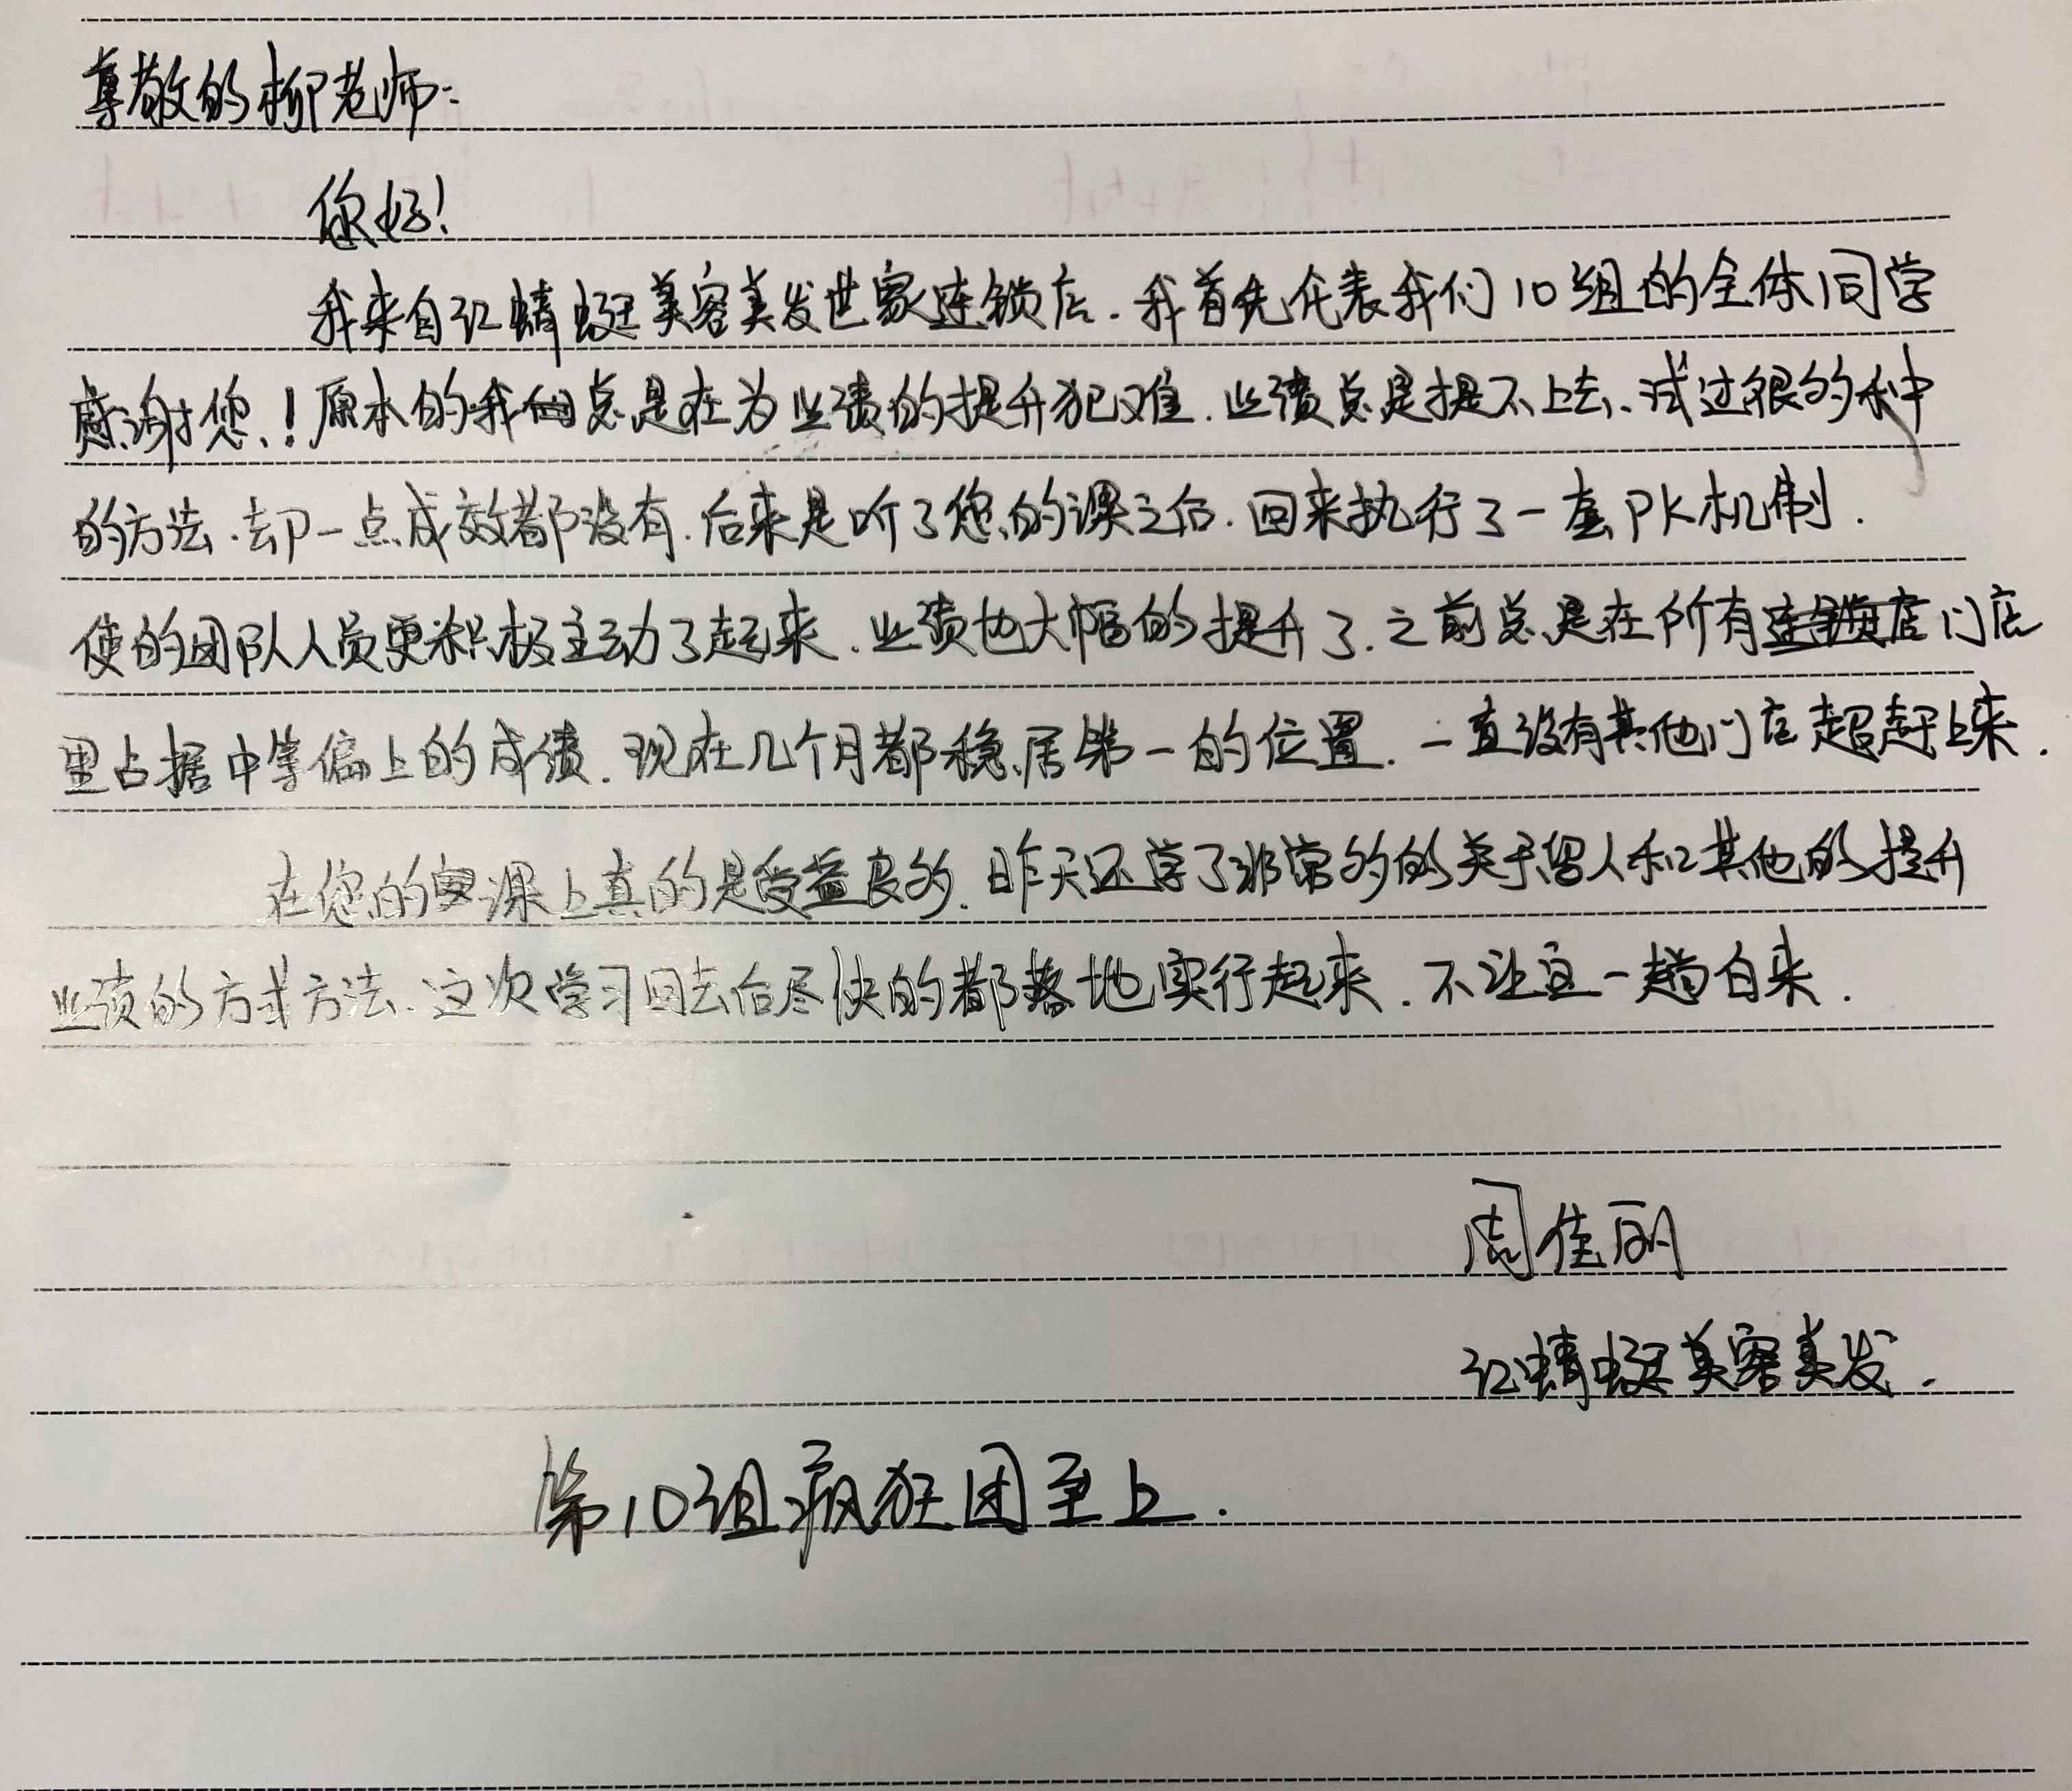 尊敬的柳老师:
你好!
我来自红蜻蜓美容美发世家连锁店.我首先代表我们10组的全体同学
感谢您!原本的我们总是在为业绩的提升犯难.业绩总是提不上去、试过很多种
的方法.却一点成效都没有.后来是听了您的课之后.回来执行了一套PK机制.
使的团队人员更积极主动了起来.业绩也大幅的提升了.之前总是在所有门店
里占据中等偏上的成绩.现在几个月都稳居第一的位置.一直没有其他门店超赶上来.
在您的课上真的是受益良多.昨天还学了非常多的关于留人和其他的提升
业绩的方式方法.这次学习回去后尽快的都落地实行起来.不让这一趟白来.
周佳丽
红蜻蜓美容美发.
第10组疯狂团至上.